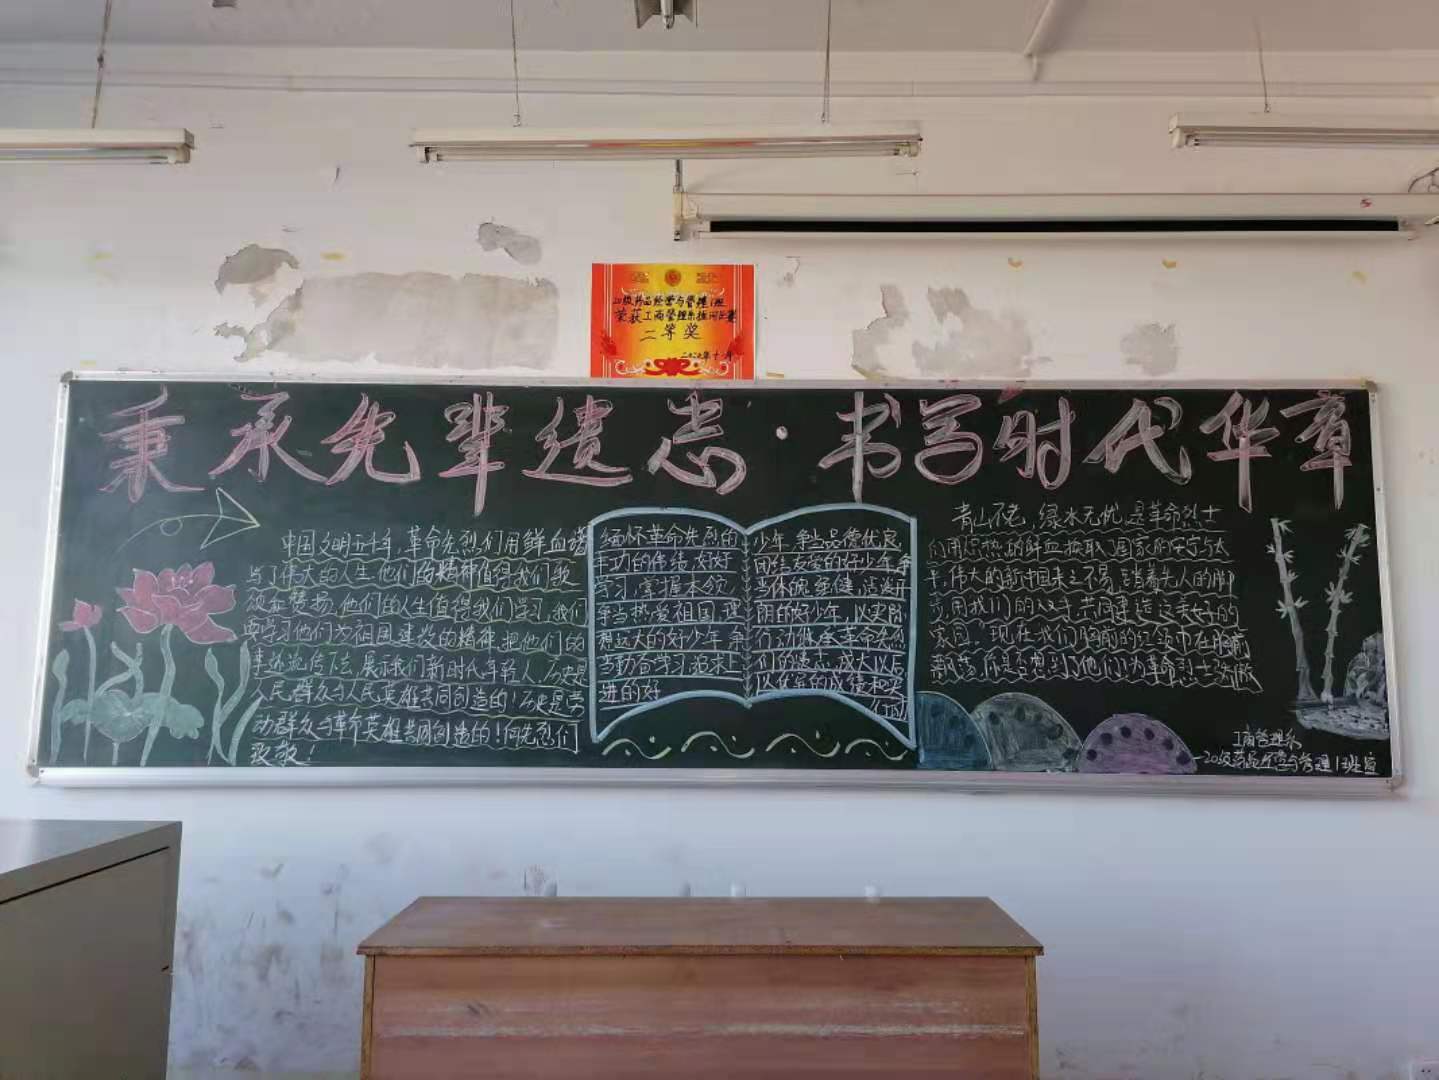 20级药品经营与管理1班
荣获工商管理系
二等奖
二〇二〇年十一月
秉承先辈遗志·书写时代华章
中国文明五千年,革命先烈们用鲜血谱
写了伟大的人生,他们的精神值得我们歌
颂和赞扬,他们的人生值得我们学习,我们
要学习他们为祖国建设的精神,把他们的
事迹流传下去,展示我们新时代年轻人,历史是
人民群众与人民英雄共同创造的!历史是劳
动群众与革命英雄共同创造的!向先烈们
致敬!
缅怀革命先烈的
丰功的伟绩,好好
学习,掌握本领
争当热爱祖国,理
想远大的好少年,争
当勤奋学习,追求上
进的好
少年,争当品德优良
团结友爱的好少年,争
当体魄强健,活泼开
朗的好少年,以实际
行动继承革命先烈
们的遗志,成大以后
以优异的成绩和实
行动
青山不老,绿水无忧,是革命烈士
们用炽热的鲜血换取了国家的安宁与太
平,伟大的新中国来之不易,踏着先人的脚
步,用我们的双手,共同建造这美好的
家园,现在我们胸前的红领巾在胸前
飘荡,你是否想到了他们为革命烈士
工商管理系
—20级药品经营与管理1班宣